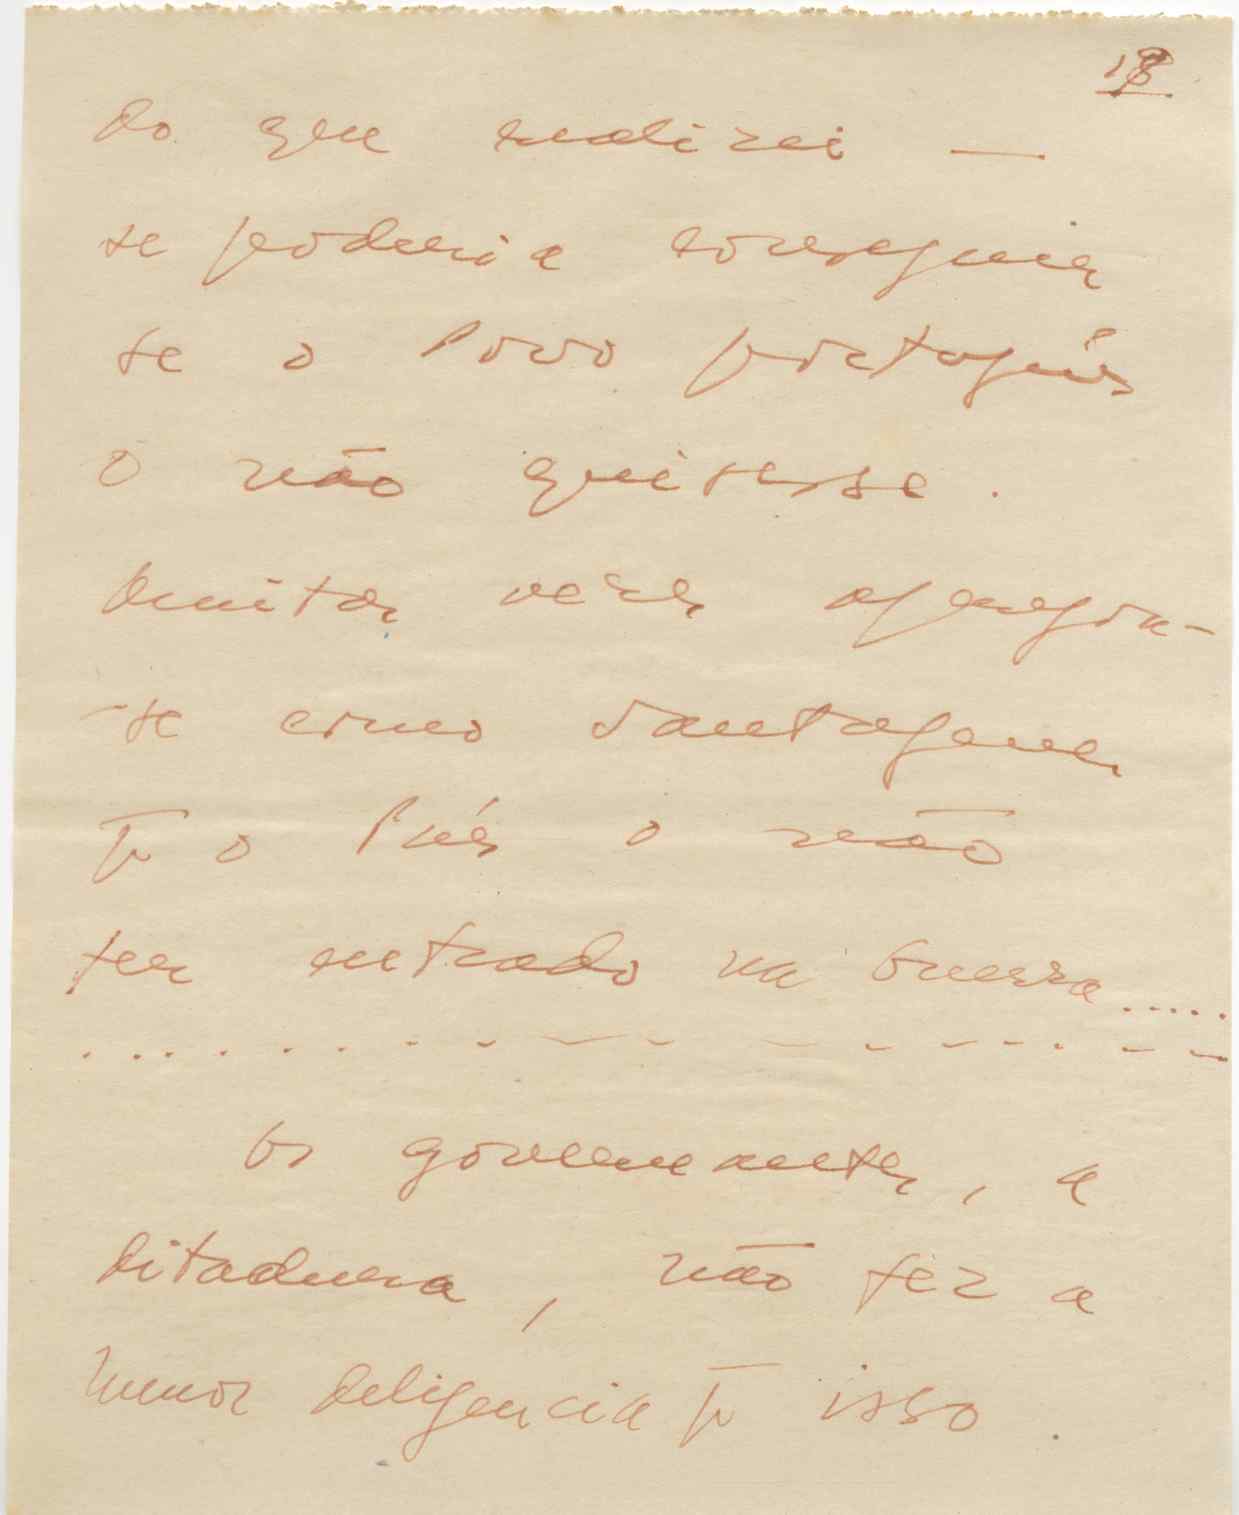 18
do que
se poderia conseguir
se o Povo português
o não quisesse.
Muitas vezes apregoa-
-se como vantagem
p̄ o País o não
ter entrado na Guerra.....
Os governantes, a
ditadura, não fez a
menor deligencia p̄ isso.